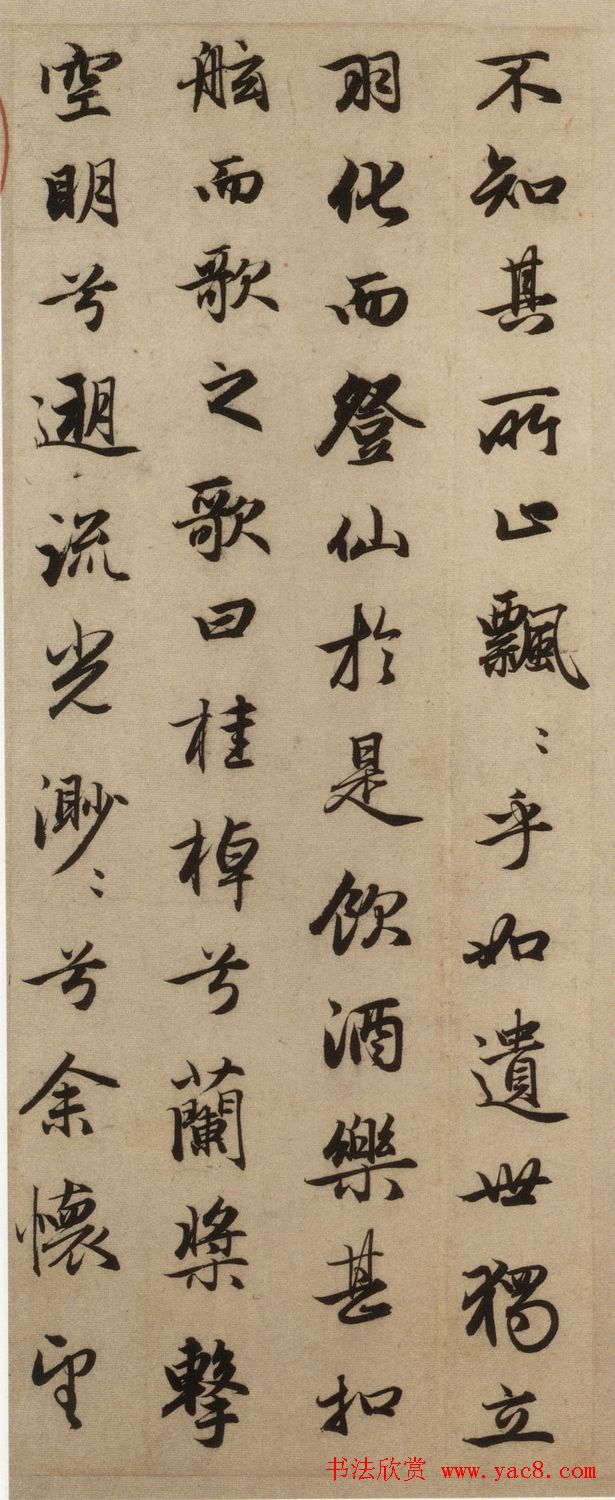 不知其所止飄〻乎如遺世獨立
羽化而登仙於是飲酒樂甚扣
舷而歌之歌曰桂棹兮蘭槳擊
空明兮遡流光渺〻兮余懷望
书法欣赏 www.yac8.com